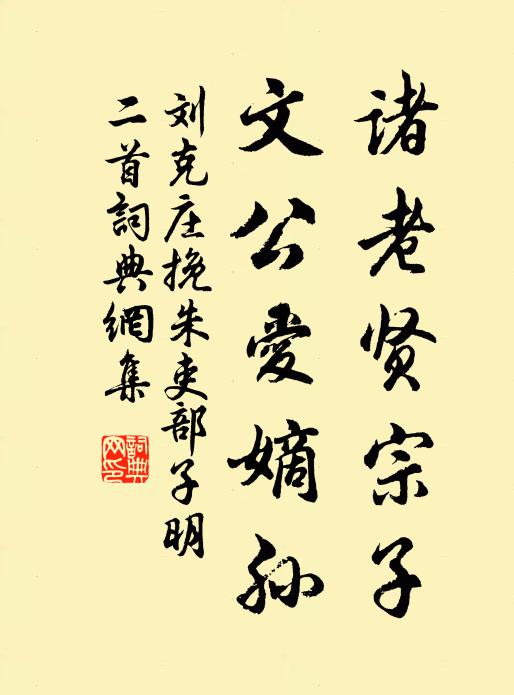 诸老贤宗子
文公爱嫡孙
刘克庄挽朱吏部子明
二首詞典網集
詞典网印